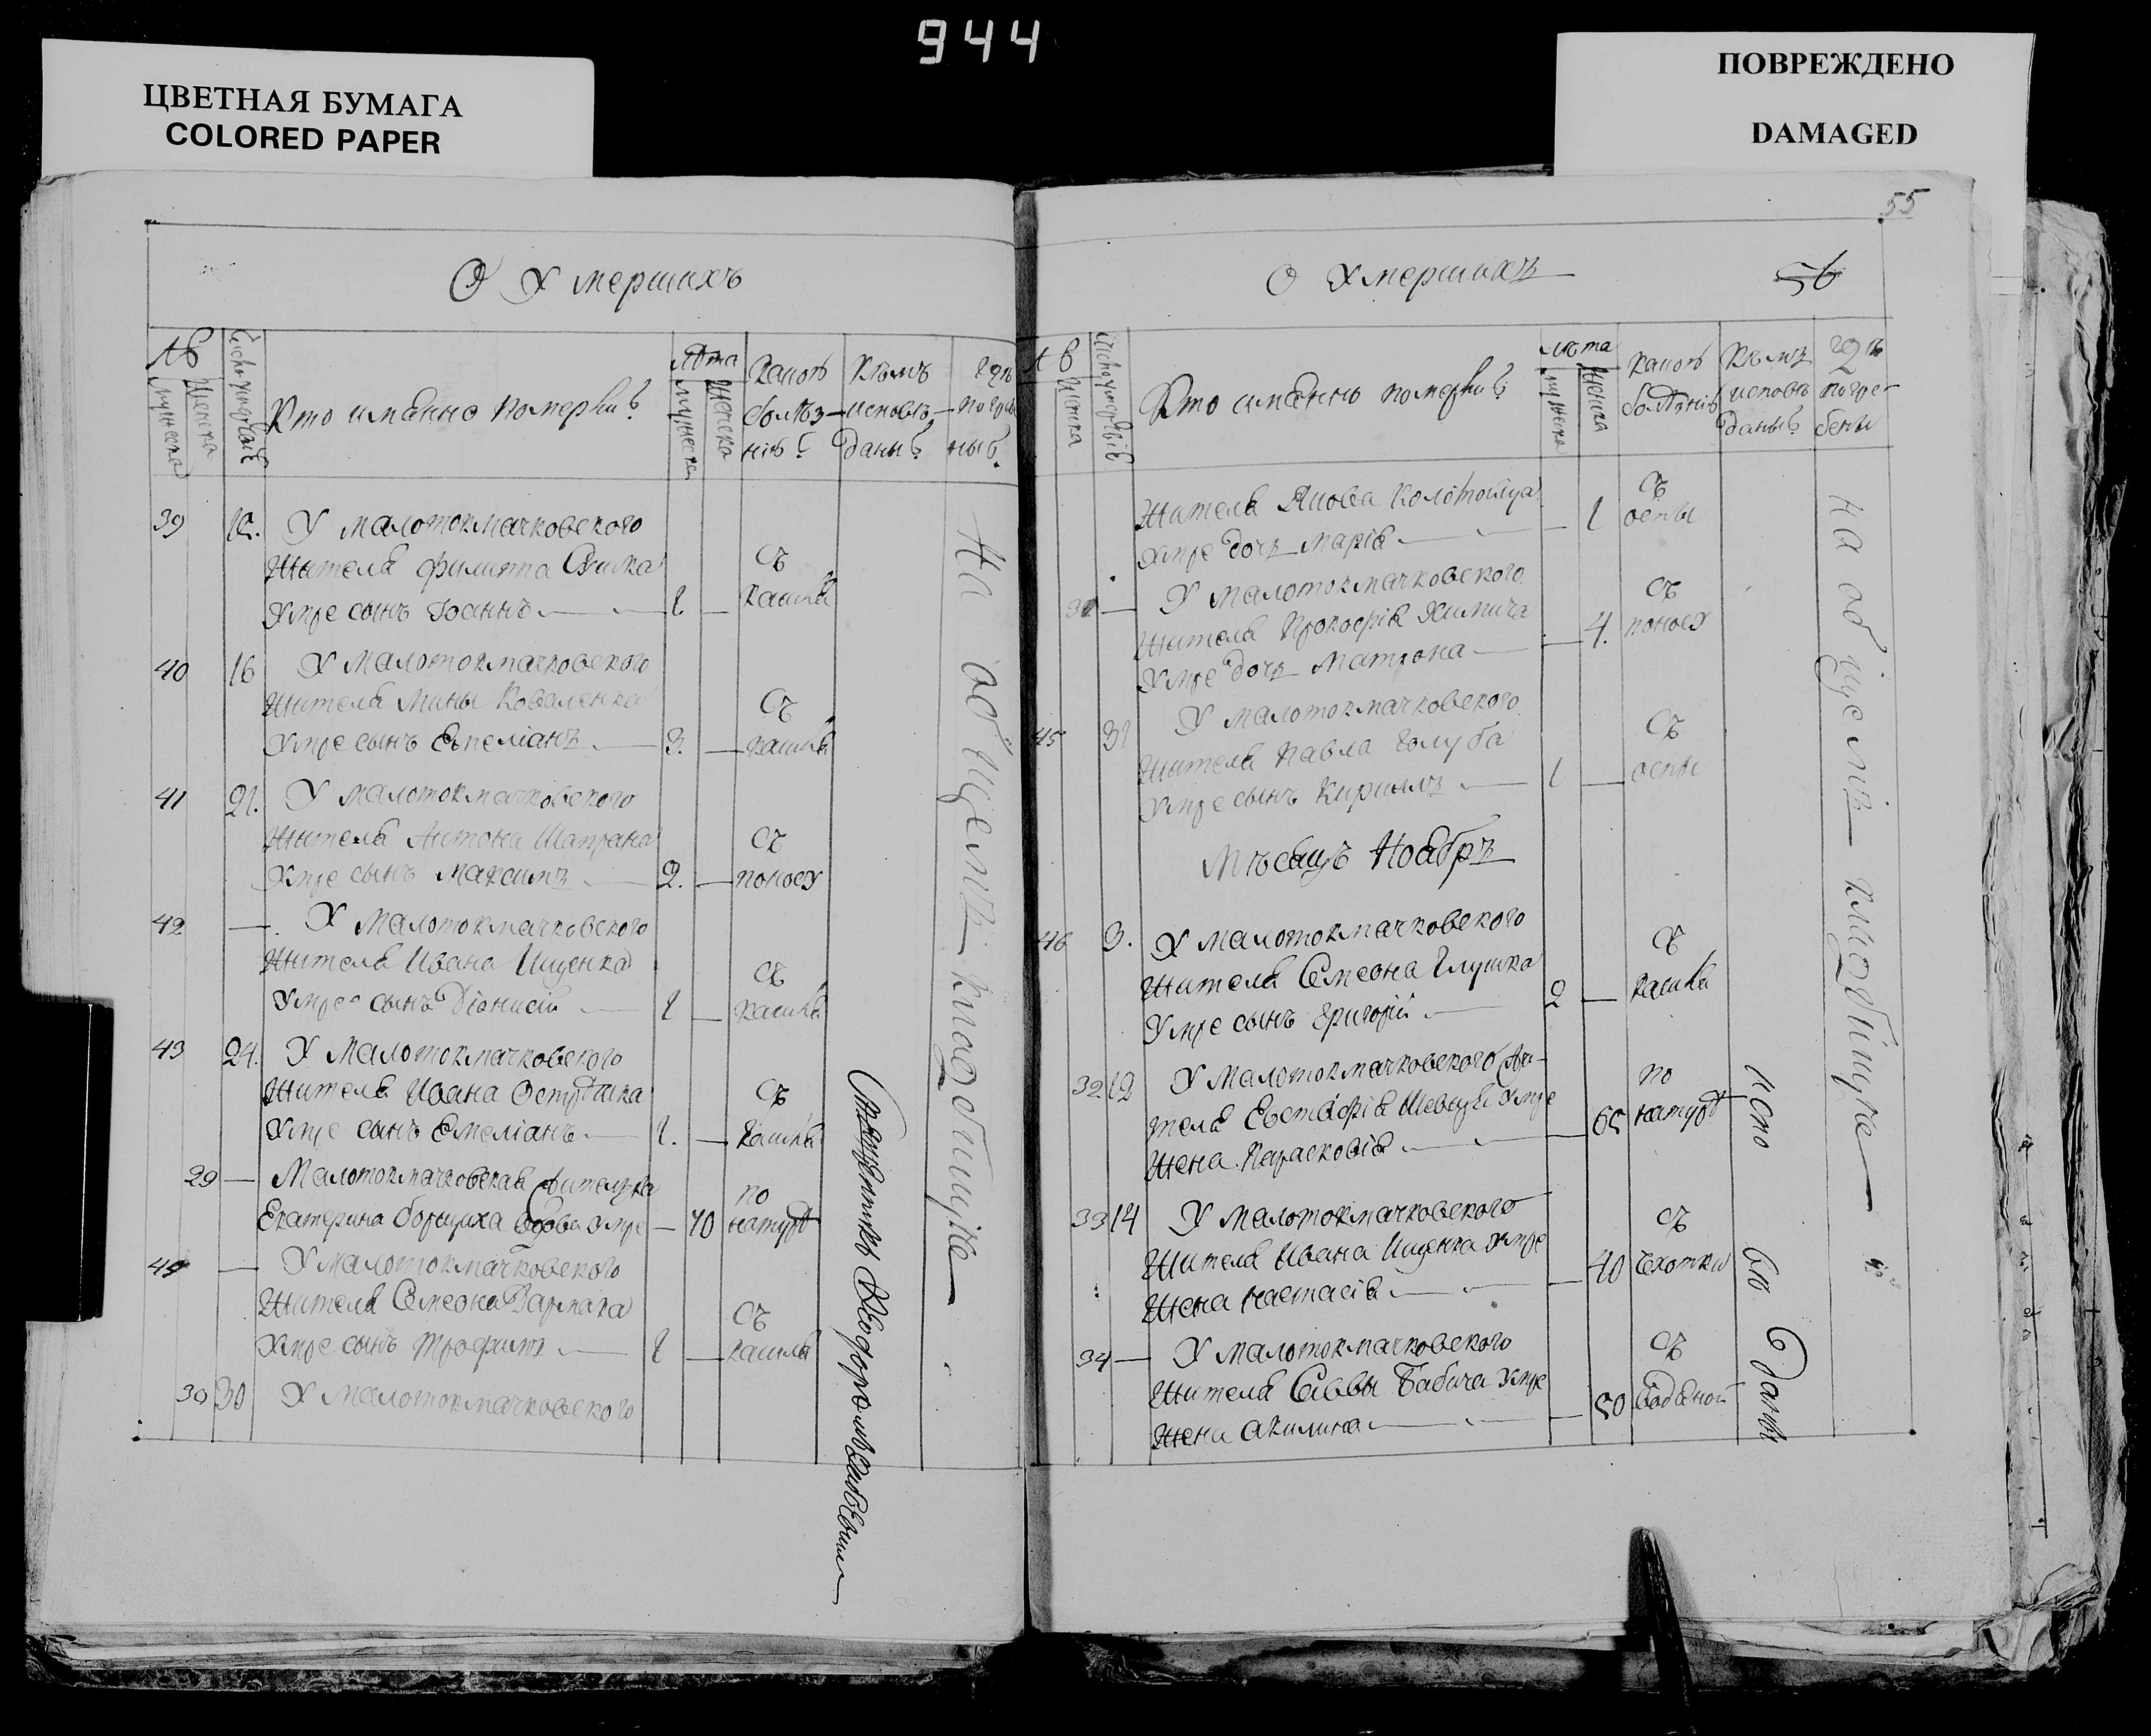 944
ЦВЕТНАЯ БУМАГА
COLORED PAPER
ПОВРЕЖДЕНО
DAMAGED
О Умершихъ
№
мужеска
женска
Кто имянно померли?
лѣта
мужеска
женска
какою
болѣз-
нію?
кѣмъ
исповѣ-
даны?
гдѣ
39
У малотокмачковского
жителя филиппа
умре сынъ Іоаннъ 1 —
съ
кашля
40 16 У Малотокмачковского
жителя Мины Коваленка
умре сынъ Емеліанъ 3. —
съ
кашля
41 21. У малотокмачковского
жителя Антона Шапрана
умре сынъ Максимъ 2. —
съ
поносу
42 — У Малотокмачковского
жителя Ивана Ищенка
умре сынъ Діонисій 1 —
съ
кашля
43 24. У Малотокмачковского
жителя Ивана
умре сынъ Емеліанъ 1. —
съ
кашля
29 — Малотокмачковская жителка
Екатерина Борщиха вдова умре — 70
по
натурѣ
44 — У Малотокмачковского
жителя Семеона
умре сынъ Трофимъ 1 —
съ
кашля
30 30 У Малотокмачковского
На общемъ кладбищѣ
55
О Умершихъ
56
№
женска
Кто имянно померли?
лѣта
мужеска
женска
какою
болѣзнію
кѣмъ
исповѣ
даны?
гдѣ
погре-
бены
жителя Якова Коломойца
умре дочь Марія — 1
съ
оспы
31 — У Малотокмачковского
жителя Прокофія Химича
умре дочь Матрона — 4.
съ
поносу
45 31 У малотокмачковского
жителя Павла Голуба
умре сынъ Кириллъ 1 —
съ
оспы
Мѣсяцъ Ноябрь
46 3. У малотокмачковского
жителя Семеона Глушка
умре сынъ Григорій 2 —
съ
кашля
32 12 У Малотокмачковского жи-
теля Евстафія Шевцуи умре
жена Парасковія — 65
по
натурѣ
33 14 У Малотокмачковского
жителя Ивана Ищенка умре
жена Настасія — 40
съ
чехотки
34 — У Малотокмачковского
жителя Саввы Бабича умре
жена Акилина — 50
съ
водяной
На общемъ кладбищѣ